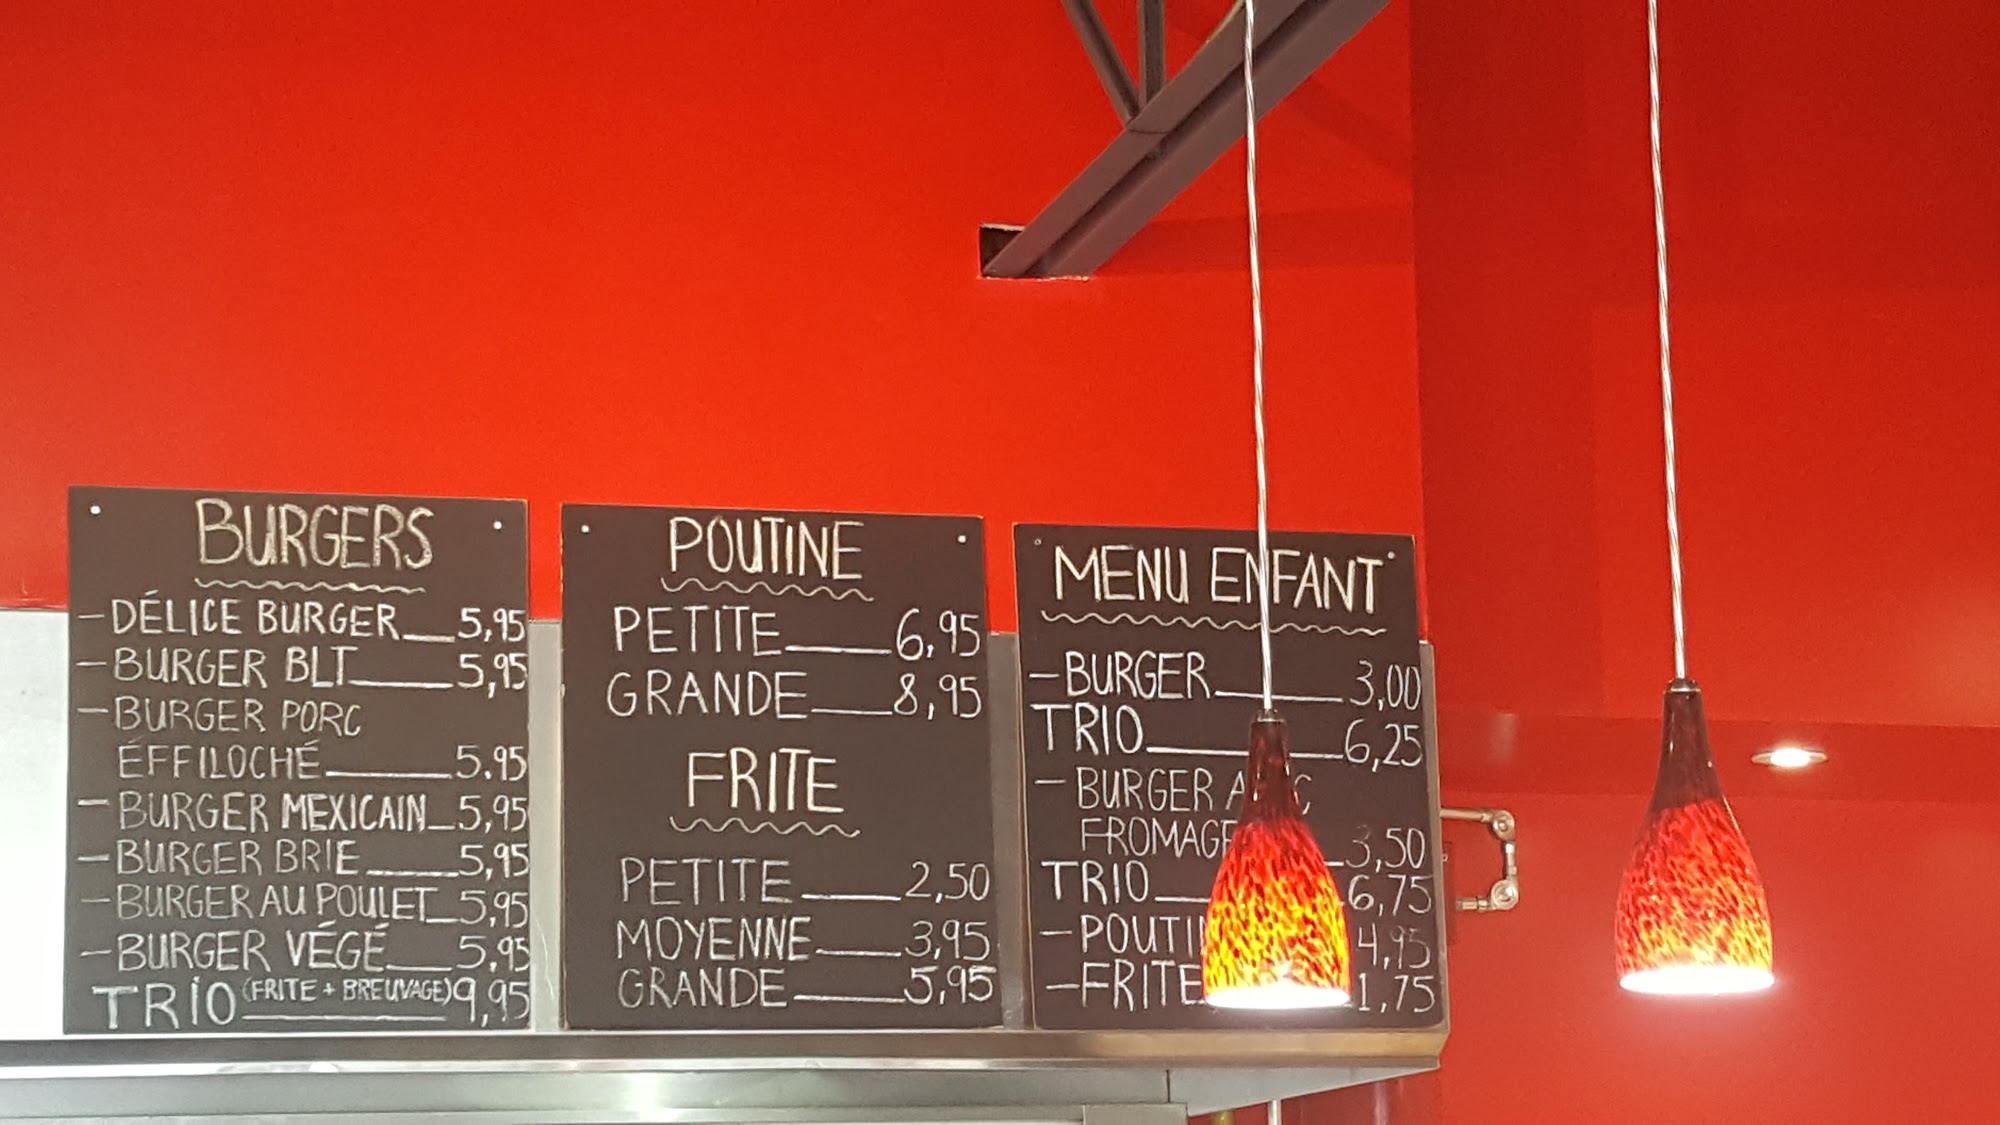 BURGERS
- DÉLICE BURGER 5,95
- BURGER BLT 5,95
- BURGER PORC
ÉFFILOCHÉ 5.95
- BURGER MEXICAIN 5,95
- BURGER BRIE 5,95
- BURGER AU POULET 5,95
- BURGER VÉGÉ 5,95
TRIO (FRITE + BREUVAGE) 9,95
POUTINE
PETITE 6,95
GRANDE 8,95
FRITE
PETITE 2,50
MOYENNE 3,95
GRANDE 5,95
MENU ENFANT
- BURGER 3,00
TRIO 6,25
- BURGER
FROMAGE 3,50
TRIO 6,75
- 4,95
- FRITE 1,75